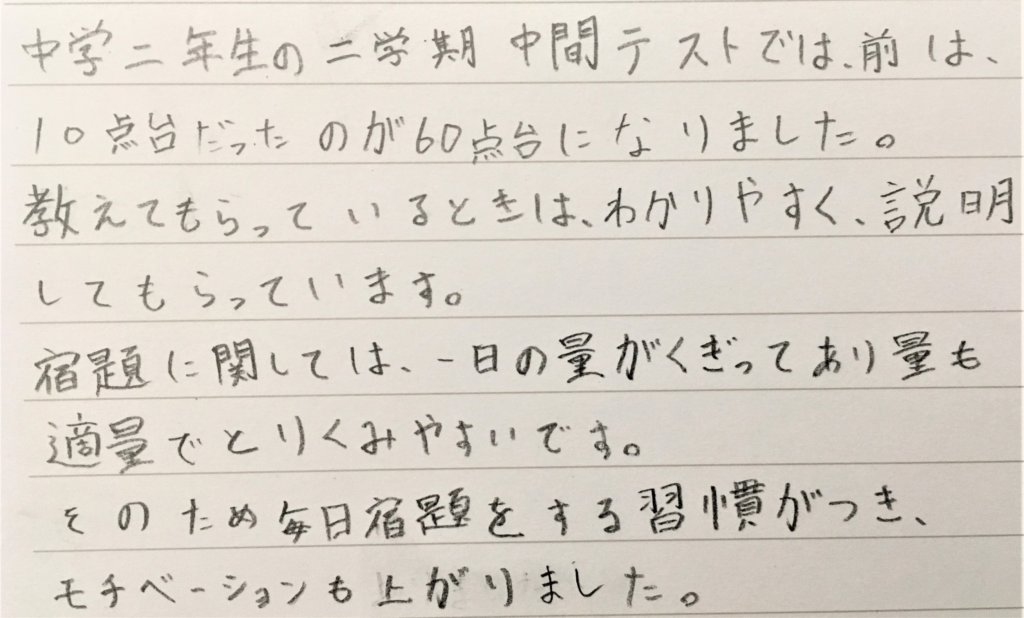 中学二年生の二学期 中間テストでは、前は、
10点台だったのが60点台になりました。
教えてもらっているときは、わかりやすく、説明
してもらっています。
宿題に関しては、一日の量がくぎってあり量も
適量でとりくみやすいです。
そのため毎日宿題をする習慣がつき、
モチベーションも上がりました。